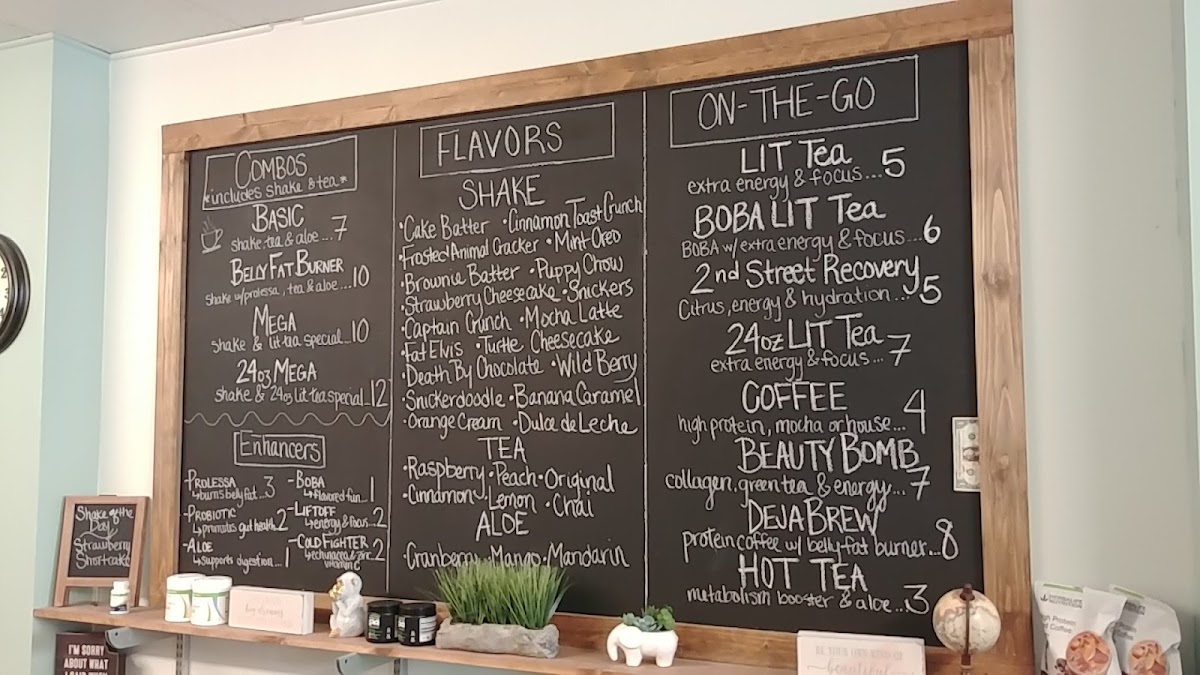 COMBOS
*includes shake & tea*
BASIC
shake, tea & aloe...7
BELLY FAT BURNER
shake w/prolessa, tea & aloe...10
MEGA
shake & lit tea special...10
24oz MEGA
shake & 24oz lit tea special...12
Enhancers
-PROLESSA
↳burns belly fat...3
-PROBIOTIC
↳promotes gut health..2
-ALOE
↳supports digestion...1
-BOBA
↳flavored fun...1
-LIFTOFF
↳energy & focus...2
-COLD FIGHTER
↳echinacea & zinc
vitamin C ..2
FLAVORS
SHAKE
•Cake Batter •Cinnamon Toast Crunch
•Frosted Animal Cracker •Mint Oreo
•Brownie Batter •Puppy Chow
•Strawberry Cheesecake •Snickers
•Captain Crunch •Mocha Latte
•Fat Elvis •Turtle Cheesecake
•Death By Chocolate •Wild Berry
•Snickerdoodle •Banana Caramel
•Orange Cream •Dulce de Leche
TEA
•Raspberry •Peach •Original
•Cinnamon •Lemon •Chai
ALOE
•Cranberry •Mango •Mandarin
ON-THE-GO
LIT Tea
extra energy & focus...5
BOBA LIT Tea
BOBA w/ extra energy & focus...6
2nd Street Recovery
Citrus, energy & hydration...5
24oz LIT Tea
extra energy & focus...7
COFFEE
high protein, mocha or house...4
BEAUTY BOMB
collagen, green tea & energy...7
DEJA BREW
protein coffee w/ belly fat burner...8
HOT TEA
metabolism booster & aloe...3
Shake of the
Day
Strawberry
Shortcake
I'M SORRY
ABOUT WHAT
beautiful
HERBALIFE